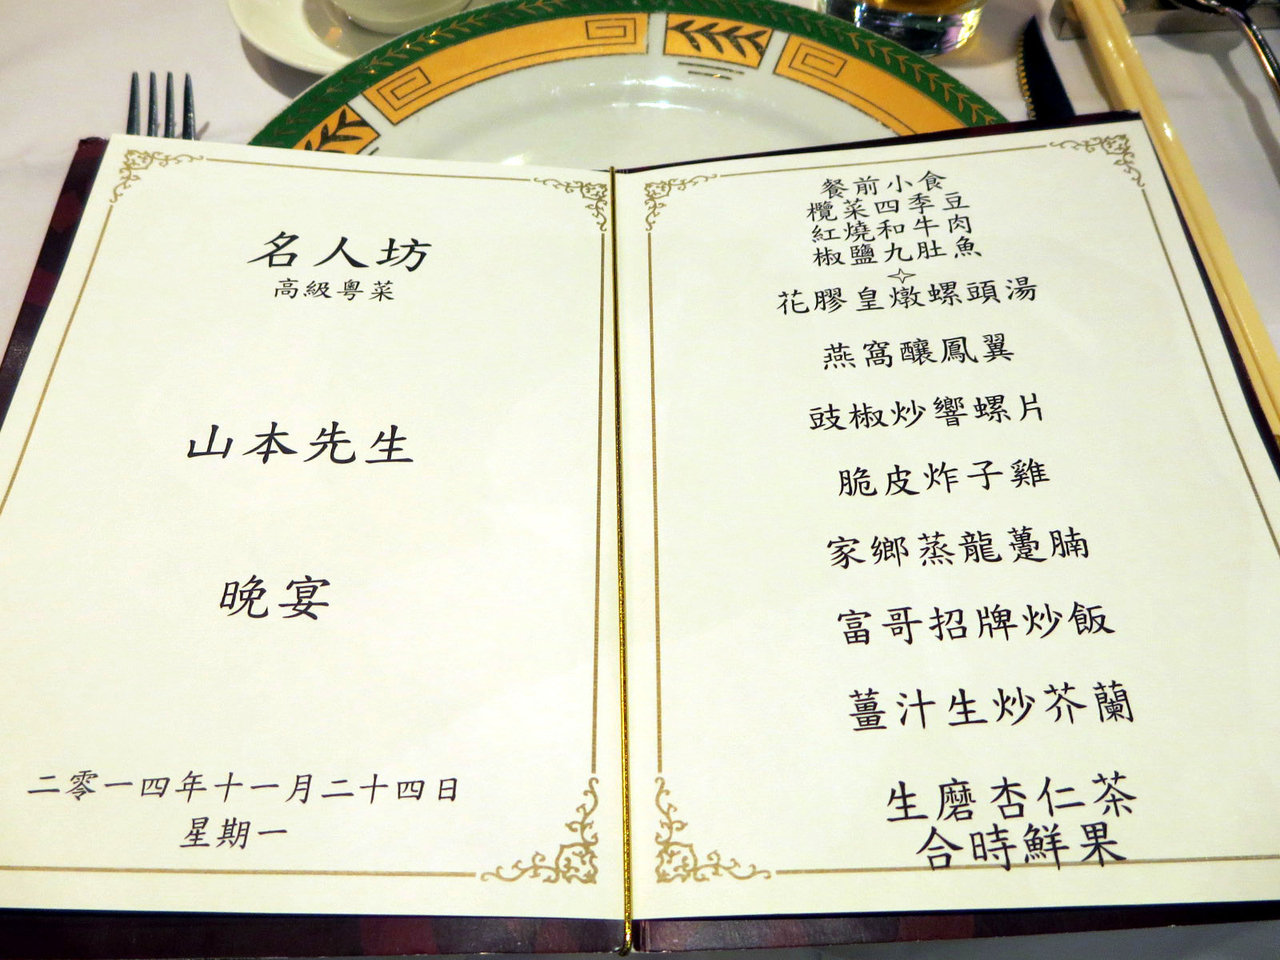 名人坊
高級粵菜
山本先生
晚宴
二零一四年十一月二十四日
星期一
餐前小食
欖菜四季豆
紅燒和牛肉
椒鹽九肚魚
花膠皇燉螺頭湯
燕窩釀鳳翼
豉椒炒響螺片
脆皮炸子雞
家鄉蒸龍躉腩
富哥招牌炒飯
薑汁生炒芥蘭
生磨杏仁茶
合時鮮果